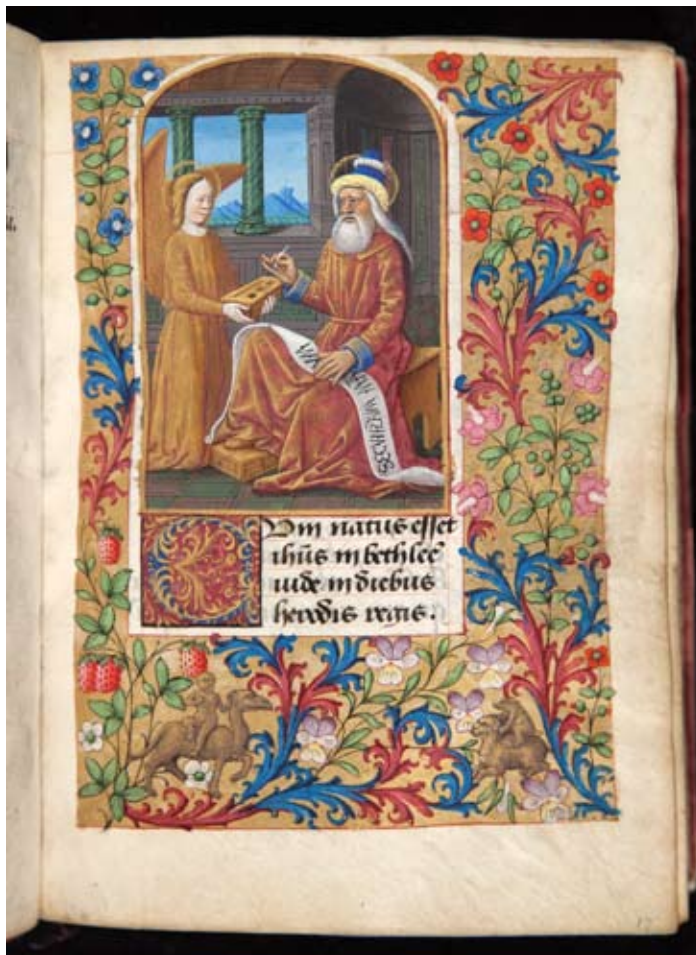 CUm natus esset
ihūs in bethleē
iude in diebus
herodis regis.
17